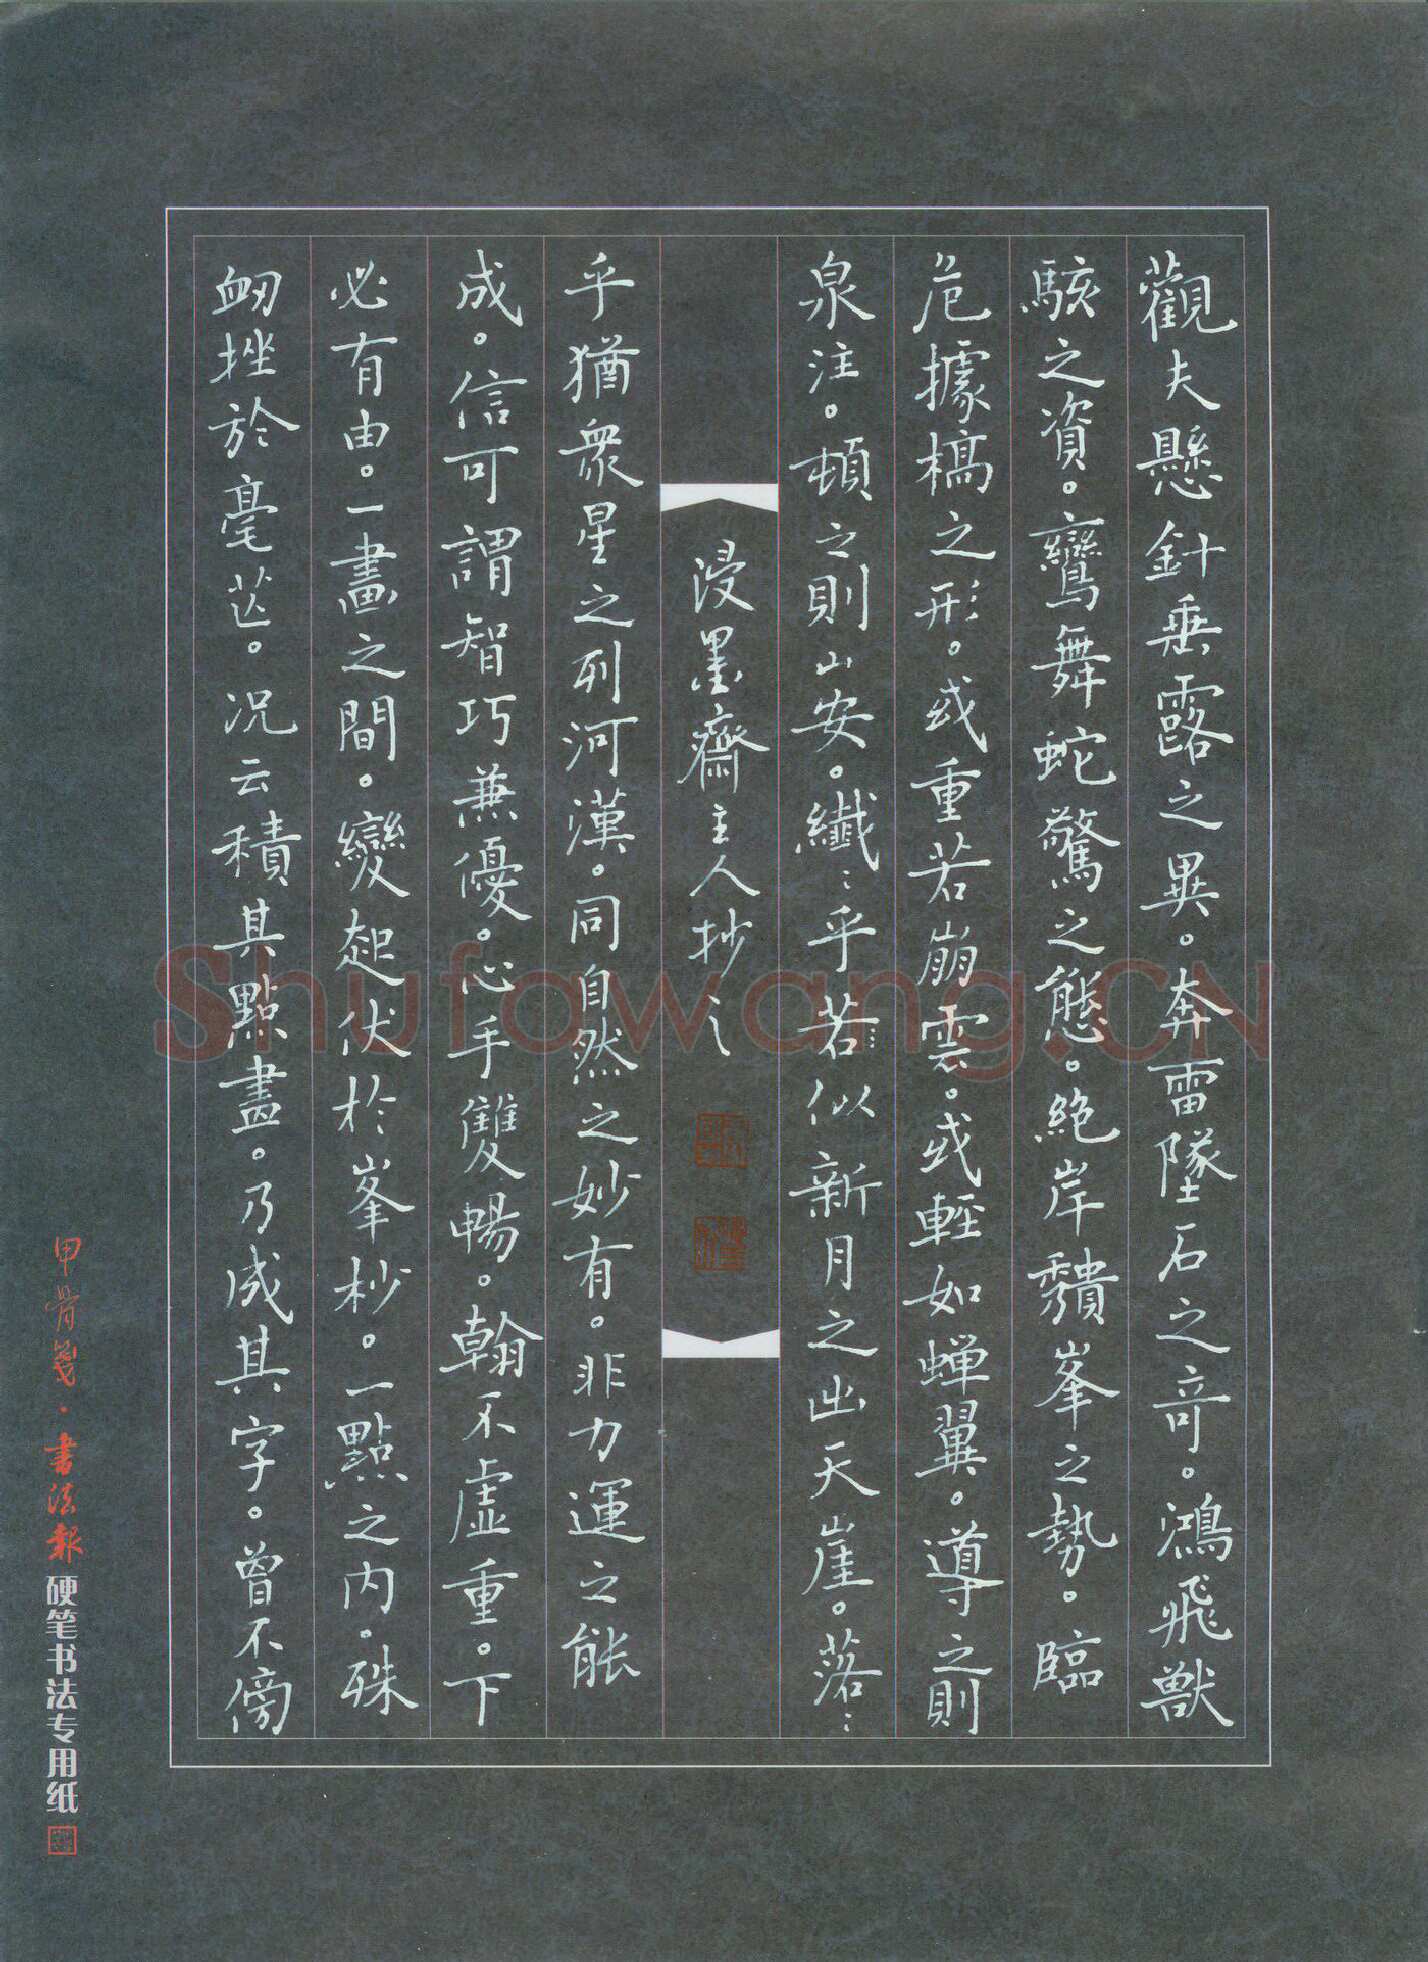 觀夫懸針垂露之異。奔雷墜石之奇。鴻飛獸
駭之資。鸞舞蛇驚之態。絶岸頹峯之勢。臨
危據槁之形。或重若崩雲。或輕如蟬翼。導之則
泉注。頓之則山安。纖〻乎若似新月之出天崖。落〻
浸墨齋主人抄之
乎猶衆星之列河漢。同自然之妙有。非力運之能
成。信可謂智巧兼優。心手雙暢。翰不虛重。下
必有由。一畫之間。變起伏於峯杪。一點之内。殊
衂挫於毫芒。况云積其點畫。乃成其字。曾不傍
甲骨箋·書法報硬笔书法专用纸
Shufawang.CN